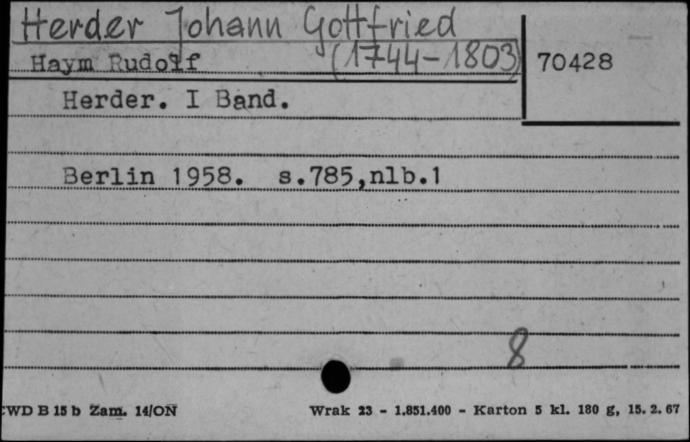 Herder Johann Gottfried
(1744-1803)
Haym Rudolf
70428
Herder. I Band.
Berlin 1958. s.785,nlb.1
8
CWD B 15 b Zam. 14/ON
Wrak 23 - 1.851.400 - Karton 5 kl. 180 g, 15. 2. 67